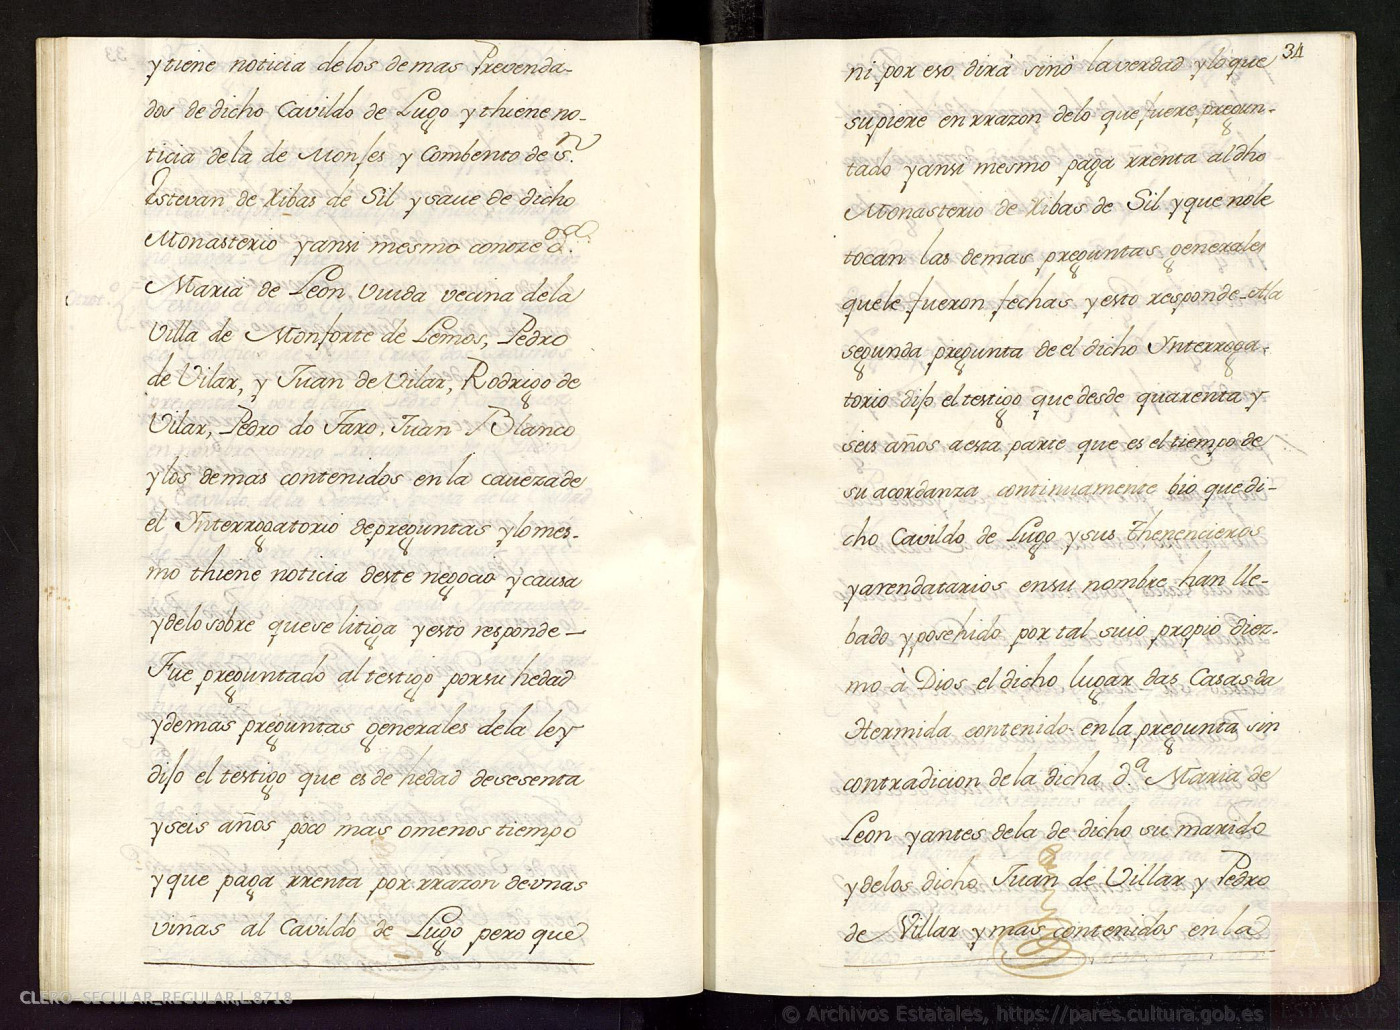 y tiene noticia de los demas Prevenda-
dos de dicho Cavildo de Lugo y thiene no-
ticia de la de Monjes y Combento de S.n
Estevan de Ribas de Sil y save de dicho
Monasterio y ansi mesmo conoze a
Maria de Leon viuda vecina de la
Villa de Monforte de Lemos, Pedro
de Vilar, y Juan de Vilar, Rodrigo de
Vilar, Pedro do Faro, Juan Blanco
y los demas contenidos en la caveza de
el Ynterrogatorio de preguntas y lo mes-
mo thiene noticia deste negocio y causa
y de lo sobre que se litiga y esto responde—
Fue preguntado al testigo por su hedad
y demas preguntas generales de la ley
dijo el testigo que es de hedad de sesenta
y seis años poco mas o menos tiempo
y que paga rrenta por rrazon de vnas
viñas al Cavildo de Lugo pero que
34
ni por eso dirá sinó la verdad y lo que
supiere en rrazon de lo que fuere pregun-
tado y ansi mesmo paga rrenta al dho
Monasterio de Ribas de Sil y que nole
tocan las demas preguntas generales
que le fueron fechas y esto responde- A la
segunda pregunta de el dicho Ynterroga-
torio dijo el testigo que desde quarenta y
seis años a esta parte que es el tiempo de
su acordanza continuamente bio que di-
cho Cavildo de Lugo y sus thenencieros
y arendatarios en su nombre han lle-
bado y posehido por tal suio propio diez-
mo à Dios el dicho lugar das Casas da
Hermida contenido en la pregunta sin
contradicion de la dicha d.a Maria de
Leon y antes de la de dicho su marido
y de los dicho Juan de Villar y Pedro
de Villar y mas contenidos en la
CLERO-SECULAR_REGULAR,L.8718
© Archivos Estatales, https://pares.cultura.gob.es